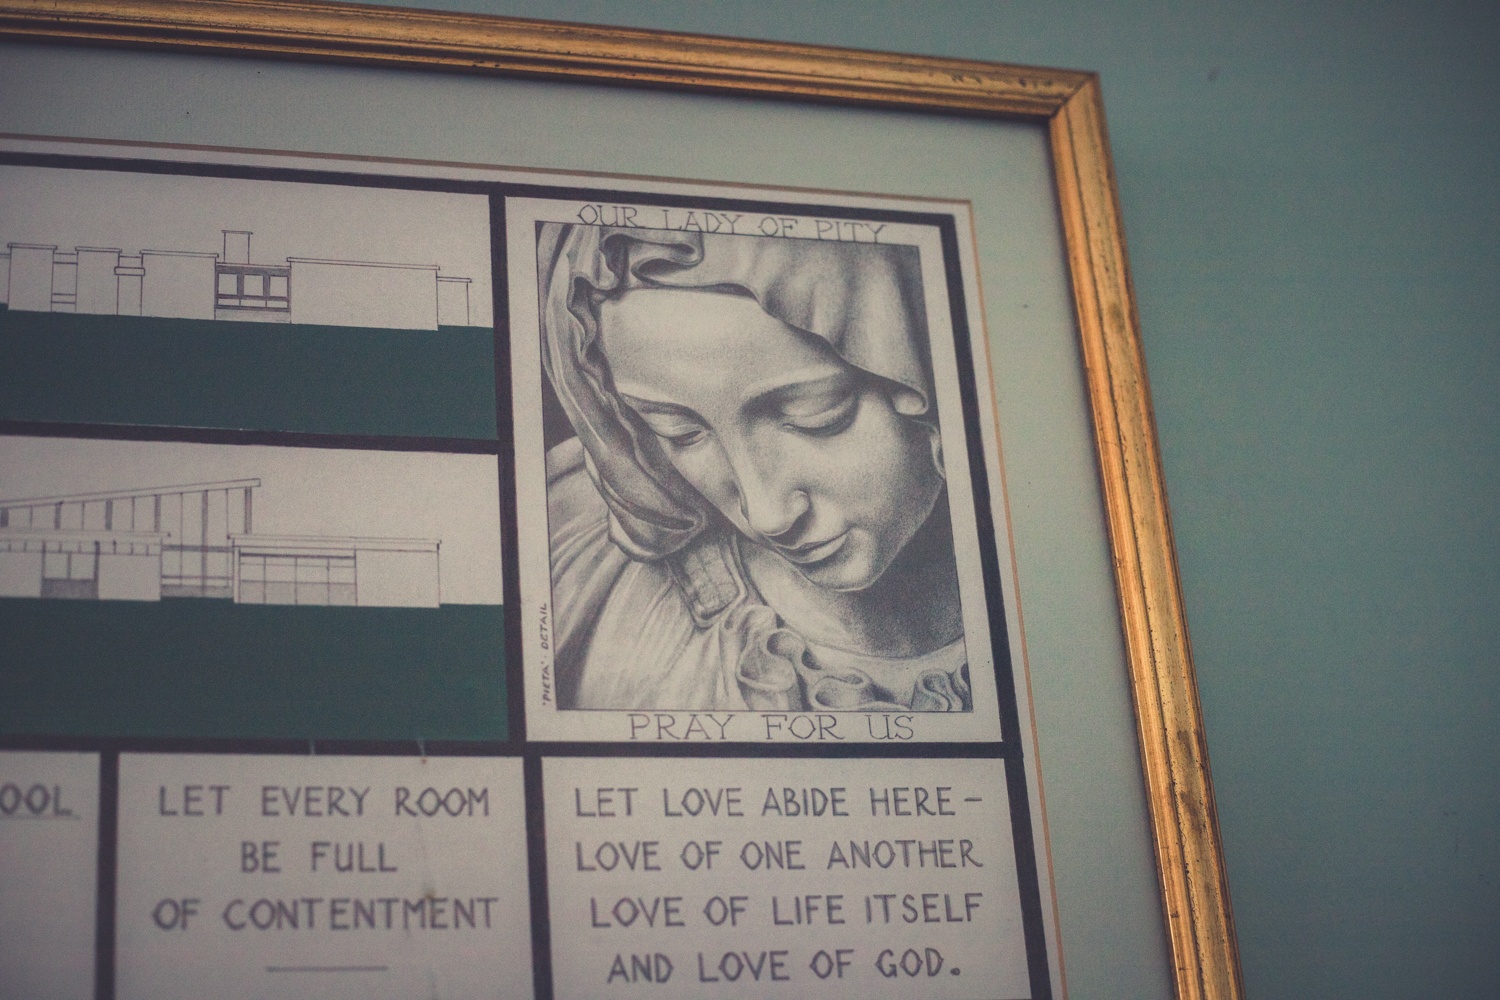 OUR LADY OF PITY
'PIETA' DETAIL
PRAY FOR US
OOL
LET EVERY ROOM
BE FULL
OF CONTENTMENT
LET LOVE ABIDE HERE–
LOVE OF ONE ANOTHER
LOVE OF LIFE ITSELF
AND LOVE OF GOD.